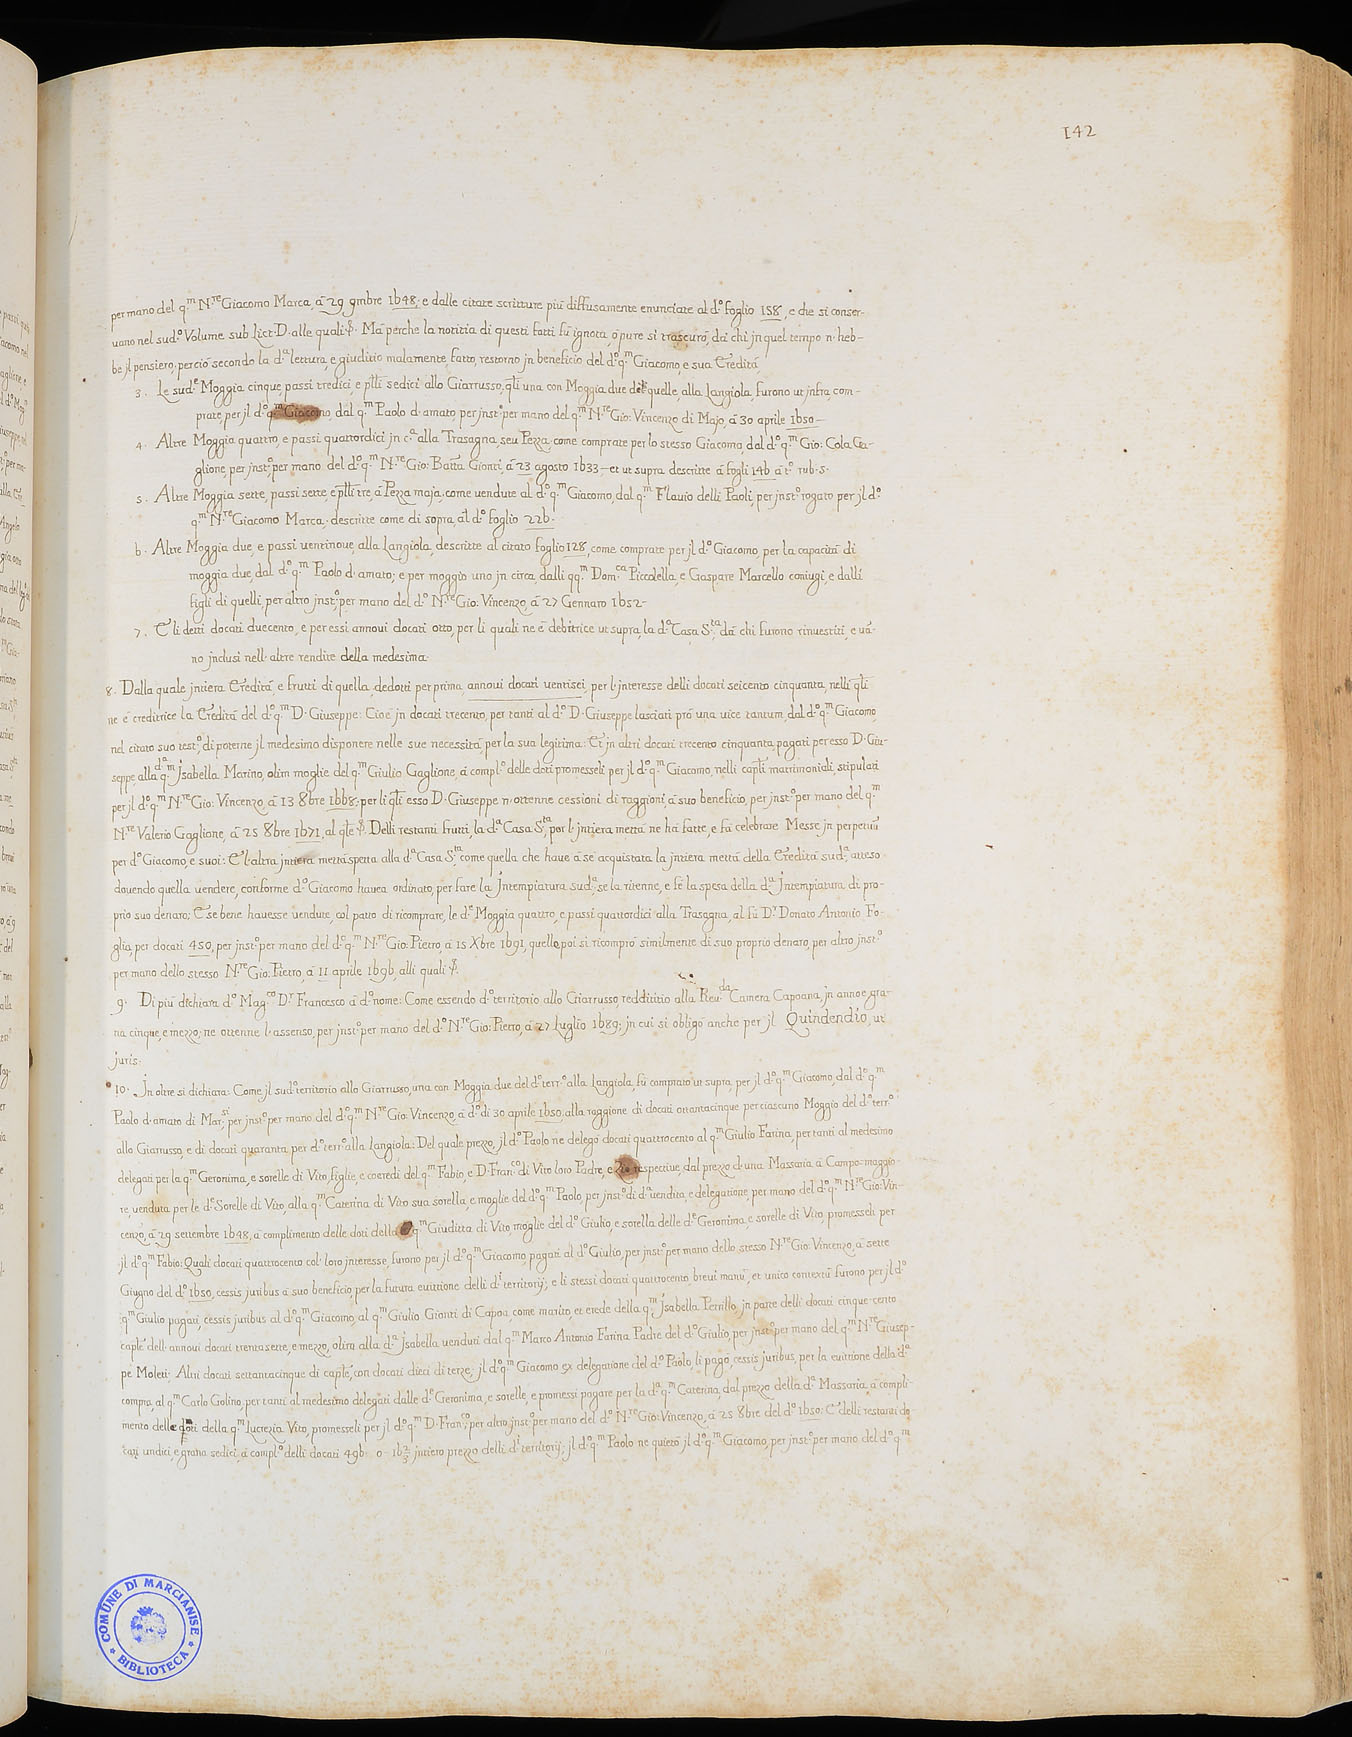 142
per mano del q.m N.re Giacomo Marca, à 29 9mbre 1648; e dalle citate scritture più diffusamente enunciate al d.o foglio 158, e che si conser-
uano nel sud.o Volume sub Lict: D. alle quali. Mà perche la notitia di questi fatti fù ignota, ò pure si trascurò, dà chi jn quel tempo n. heb-
be jl pensiero; perciò secondo la d.a lettura, e giuditio malamente, fatto, restorno jn beneficio del d.o q.m Giacomo, e sua Eredità
3. Le sud.e Moggia cinque, passi tredici, e p̄tti sedici allo Giarrusso, q̄li una con Moggia due di quelle, alla Langiola, furono ut jnfra, com-
prate, per jl d.o q.m Giacomo, dal q.m Paolo d. amato, per jnst.o per mano del q.m N.re Gio: Vincenzo di Majo, à 30 aprile 1650-
4. Altre Moggia quattro, e passi quattordici jn c.a alla Trasagna, seu Pezza, come comprate per lo stesso Giacomo, dal d.o q.m Gio: Cola Ga-
glione, per jnst.o per mano del d.o q.m N.re Gio: Batt̄a Gionti, à 23 agosto 1633-et ut supra descritte à fogli 146 à t.o rub. 5.
5. Altre Moggia sette, passi sette, e p̄tti tre, à Pezza maja, come uendute al d.o q.m Giacomo, dal q.m Flauio delli Paoli, per jnst.o rogato per jl d.o
q.m N.re Giacomo Marca, descritte come di sopra, al d.o foglio 226.
6. Altre Moggia due, e passi uentinoue, alla Langiola, descritte al citato foglio 128, come comprate per jl d.o Giacomo, per la capacità di
moggia due, dal d.o q.m Paolo d. amato; e per moggio uno jn circa, dalli qq.m Dom.ca Piccolella, e Gaspare Marcello coniugi, e dalli
figli di quelli, per altro jnst.o per mano del d.o N.re Gio: Vincenzo, à 27 Gennaro 1652-
7. E li detti docati duecento, e per essi annoui docati otto, per li quali ne è debitrice ut supra, la d.a Casa S.ta dà chi furono rinuestiti, e uà-
no jnclusi nell. altre rendite della medesima.
8. Dalla quale jntiera Eredità, e frutti di quella, dedotti per prima, annoui docati uentisei, per l. jnteresse delli docati seicento cinquanta, nelli q̄li
ne è creditrice la Eredità del d.o q.m D. Giuseppe: Cioè jn docati trecento, per tanti al d.o D. Giuseppe lasciati prò una uice tantum, dal d.o q.m Giacomo,
nel citato suo test.o, di poterne jl medesimo disponere nelle sue necessità, per la sua legitima: Et jn altri docati trecento cinquanta, pagati per esso D. Giu-
seppe, alla d.a q.m Jsabella Marino, olim moglie del q.m Giulio Gaglione, à compl.o delle doti promesseli per jl d.o q.m Giacomo, nelli cap̄li matrimoniali, stipulati
per jl d.o q.m N.re Gio: Vincenzo, à 13 8bre 1668; per li q̄li esso D. Giuseppe n. ottenne cessioni di raggioni, à suo beneficio, per jnst.o per mano del q.m
N.re Valerio Gaglione, à 25 8bre 1671, al q̄le. Delli restanti frutti, la d.a Casa S.ta, por l. jntiera metà ne hà fatte, e fà celebrare Messe jn perpetuū
per d.o Giacomo, e suoi: E l. altra jntiera metà spetta alla d.a Casa S.ta come quella che haue à se acquistata la jntiera metà della Eredità sud.a, atteso
douendo quella uendere, conforme d.o Giacomo hauea ordinato, per fare la Jntempiatura sud.a, se la ritenne, e fè la spesa della d.a Jntempiatura di pro-
prio suo denaro; E se bene hauesse uendute, col patto di ricomprare, le d.e Moggia quattro, e passi quattordici alla Trasagna, al fù D.r Donato Antonio Fo-
glia, per docati 450, per jnst.o per mano del d.o q.m N.re Gio: Pietro, à 15 Xbre 1691, quelle poi si ricomprò similmente di suo proprio denaro, per altro jnst.o
per mano dello stesso N.re Gio: Pietro, à 11 aprile 1696, alli quali.
9. Di più dichiara d.o Mag.co D.r Francesco à d.o nome: Come essendo d.o territorio allo Giarrusso, reddititio alla Reu.da Camera Capoana, jn annoe gra-
na cinque, e mezzo, ne ottenne l. assenso, per jnst.o per mano del d.o N.re Gio: Pietro, à 27 Luglio 1689; jn cui si obligò anche per jl Quindendio, ut
juris.
10. Jn oltre si dichiara: Come jl sud.o territorio allo Giarrusso, una con Moggia due del d.o terr.o alla Langiola, fù comprato ut supra, per jl d.o q.m Giacomo, dal d.o q.m
Paolo d. amato di Mar.si per jnst.o per mano del d.o q.m N.re Gio: Vincenzo, à d.o dì 30 aprile 1650, alla raggione di docati ottantacinque per ciascuno Moggio del d.o terr.o
allo Giarrusso, e di docati quaranta, per d.o terr.o alla Langiola: Del quale prezzo, jl d.o Paolo ne delegò docati quattrocento al q.m Giulio Farina, per tanti al medesimo
delegati per la q.m Geronima, e sorelle di Vito, figlie, e coeredi del q.m Fabio, e D. Fran.co di Vito loro Padre, e Zio respectiue, dal prezzo di una Massaria à Campo-maggio-
re, uenduta per le d.e Sorelle di Vito, alla q.m Caterina di Vito sua sorella, e moglie del d.o q.m Paolo, per jnst.o di d.a uendita, e delegatione, per mano del d.o q.m N.re Gio: Vin-
cenzo, à 29 settembre 1648, à complimento delle doti della q.m Giuditta di Vito, moglie del d.o Giulio, e sorella delle d.e Geronima, e sorelle di Vito, promesseli per
jl d.o q.m Fabio: Quali docati quattrocento col. loro jnteresse, furono per jl d.o q.m Giacomo, pagati al d.o Giulio, per jnst.o per mano dello stesso N.re Gio: Vincenzo, à sette
Giugno del d.o 1650, cessis juribus à suo beneficio, per la futura euittione delli d.i territorij; e li stessi docati quattrocento breui manu, et unico contextu furono per jl d.o
q.m Giulio pagati, cessis juribus al d.o q.m Giacomo, al q.m Giulio Gionti di Capoa, come marito, et erede della q.m Jsabella Perrillo, jn parte delli docati cinque-cento
cap̄le dell. annoui docati trentasette, e mezzo, olim alla d.a Jsabella uenduti dal q.m Marco Antonio Farina Padre del d.o Giulio, per jnst.o per mano del q.m N.re Giusep-
pe Moleti; Altri docati settantacinque di cap̄le, con docati dieci di terze, jl d.o q.m Giacomo ex delegatione del d.o Paolo, li pagò, cessis juribus, per la euittione della d.a
compra, al q.m Carlo Golino, per tanti al medesimo delegati dalle d.e Geronima, e sorelle, e promessi pagare per la d.a q.m Caterina, dal prezzo della d.a Massaria, à compli-
mento delle doti della q.m Lucrezia Vito, promesseli per jl d.o q.m D. Fran.co, per altro jnst.o per mano del d.o N.re Gio: Vincenzo, à 25 8bre del d.o 1650: E delli restanti do-
cati undici, e grana sedici, à compl.o delli docati 496-0-16⅔ jntiero prezzo delli d.i territorij, jl d.o q.m Paolo ne quietò jl d.o q.m Giacomo, per jnst.o per mano del d.o q.m
COMUNE DI MARCIANISE
* BIBLIOTECA *